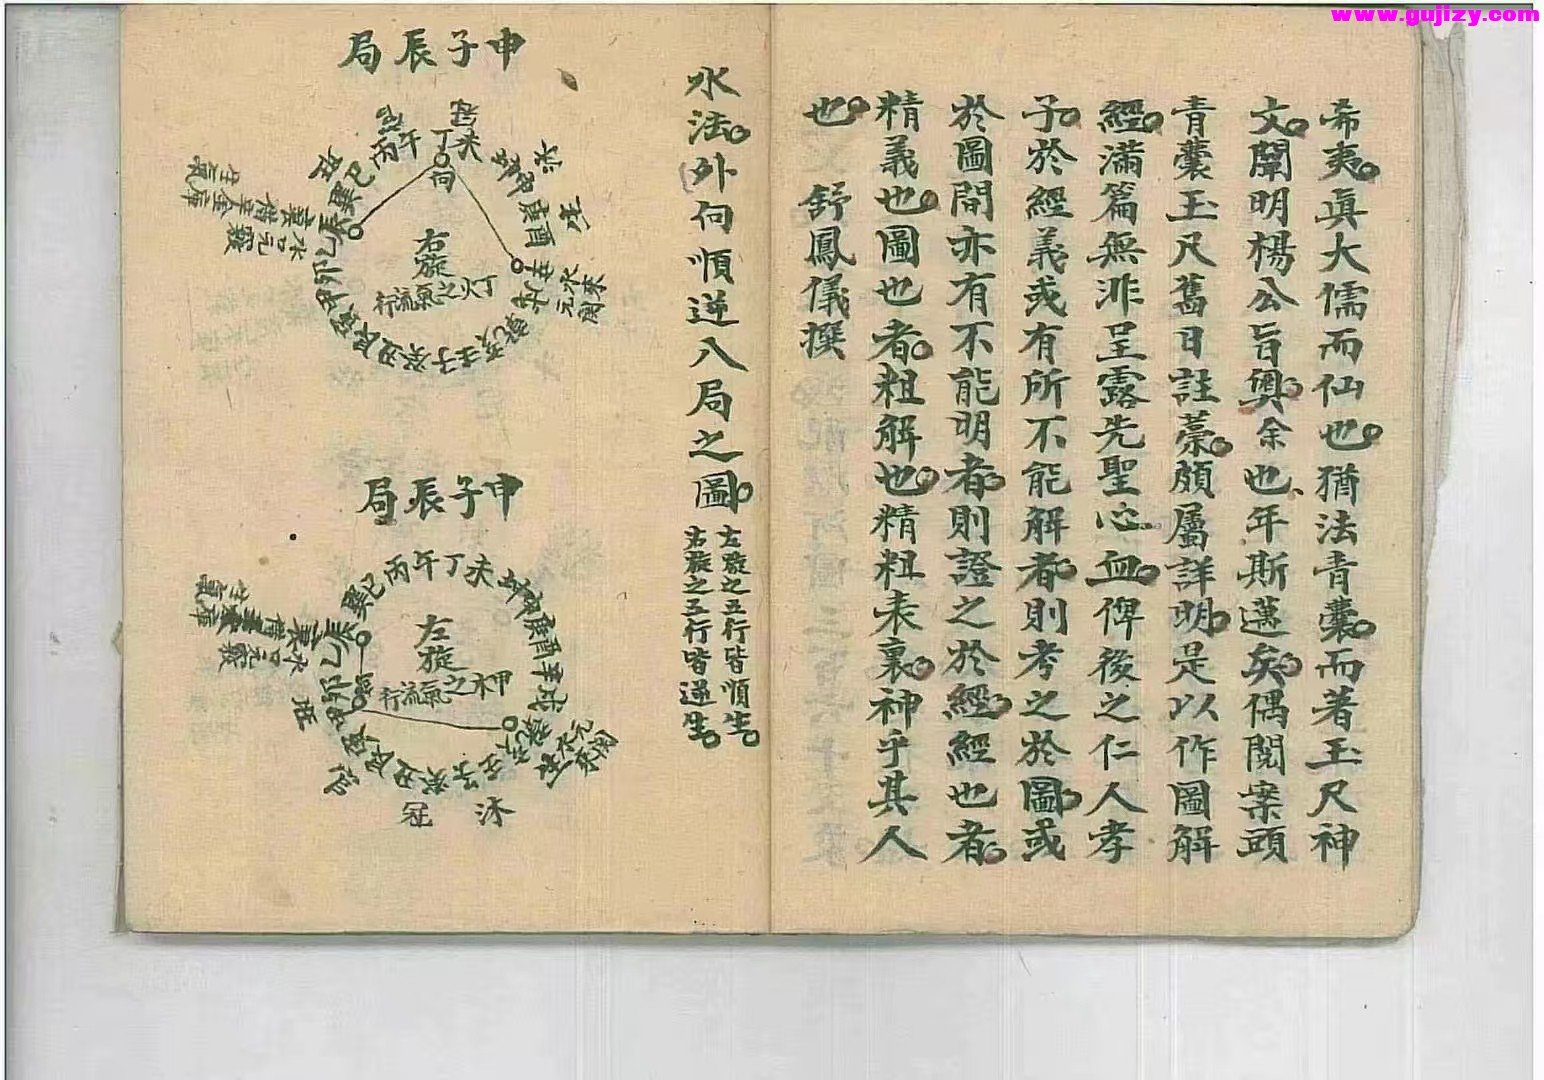 www.gujizy.com
希夷真大儒而仙也猶法青囊而著玉尺神
文闡明楊公旨奧余也年斯邁矣偶閱案頭
青囊玉尺舊日註藁頗屬詳明是以作圖解
經滿篇無非呈露先聖心血俾後之仁人孝
子於經義或有所不能解者則考之於圖或
於圖間亦有不能明者則證之於經經也者
精義也圖也者粗解也精粗表裏神乎其人
也 舒鳳儀撰
水法外向順逆八局之圖
左旋之五行皆順生
右旋之五行皆逆生
申子辰局
丙午丁未
向
巽巳
右旋
丁火之氣流行
申子辰局
巽巳丙午丁未
左旋
甲木之氣流行
沐
冠